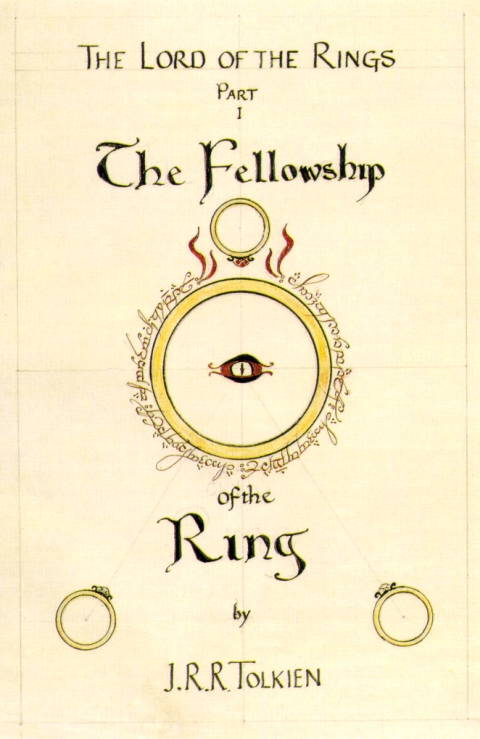 THE LORD OF THE RINGS
PART
I
The Fellowship
of the
Ring
by
J.R.R. TOLKIEN